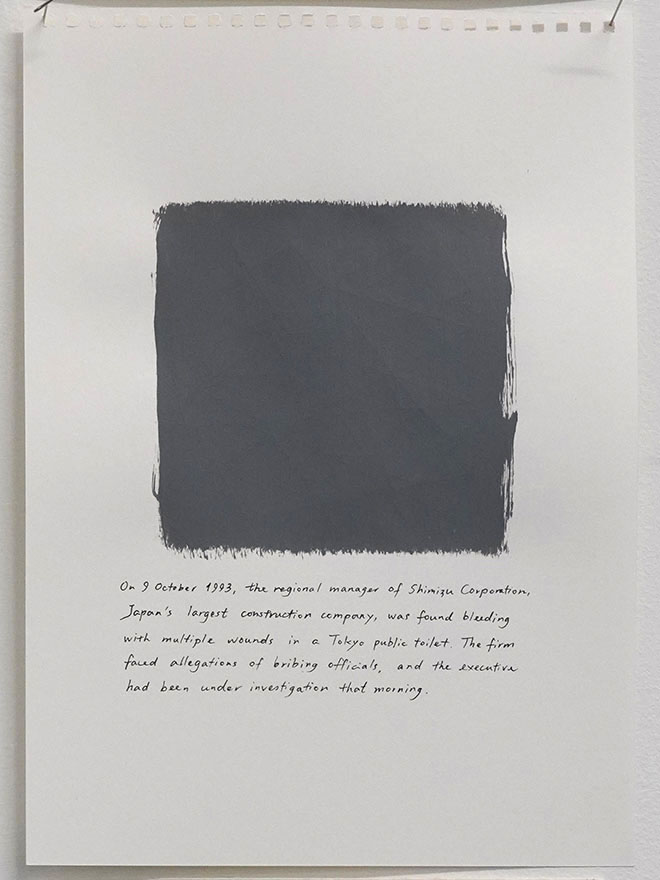 On 9 October 1993, the regional manager of Shimizu Corporation,
Japan's largest construction company, was found bleeding
with multiple wounds in a Tokyo public toilet. The firm
faced allegations of bribing officials, and the executive
had been under investigation that morning.